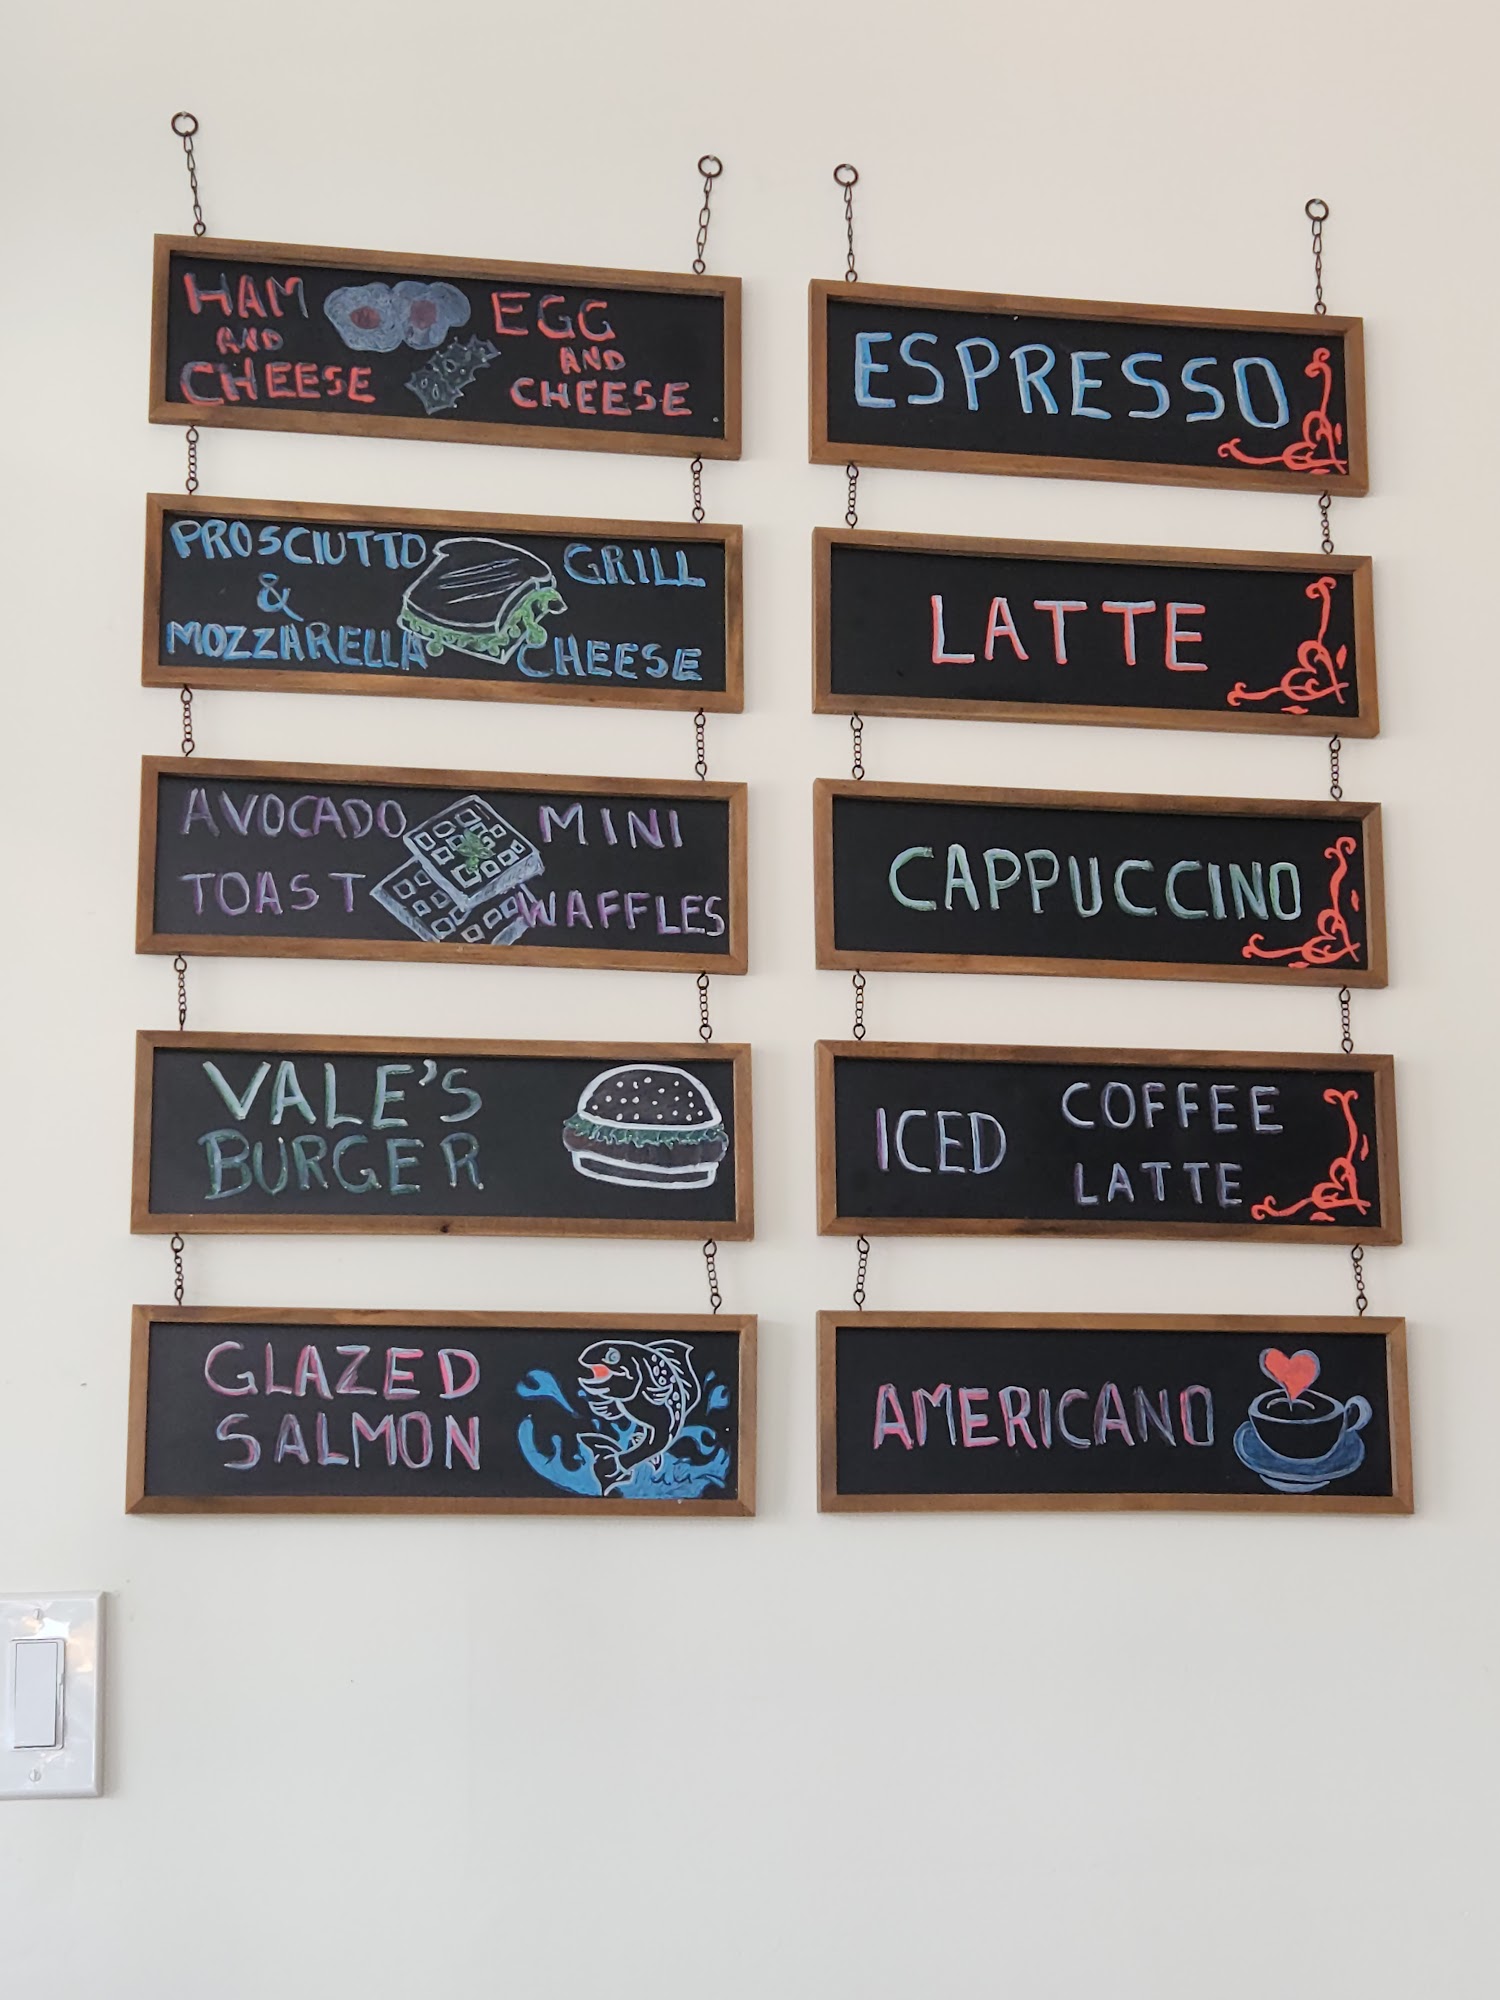 HAM
AND
CHEESE
EGG
AND
CHEESE
PROSCIUTTO
&
MOZZARELLA
GRILL
CHEESE
AVOCADO
TOAST
MINI
WAFFLES
VALE'S
BURGER
GLAZED
SALMON
ESPRESSO
LATTE
CAPPUCCINO
ICED
COFFEE
LATTE
AMERICANO